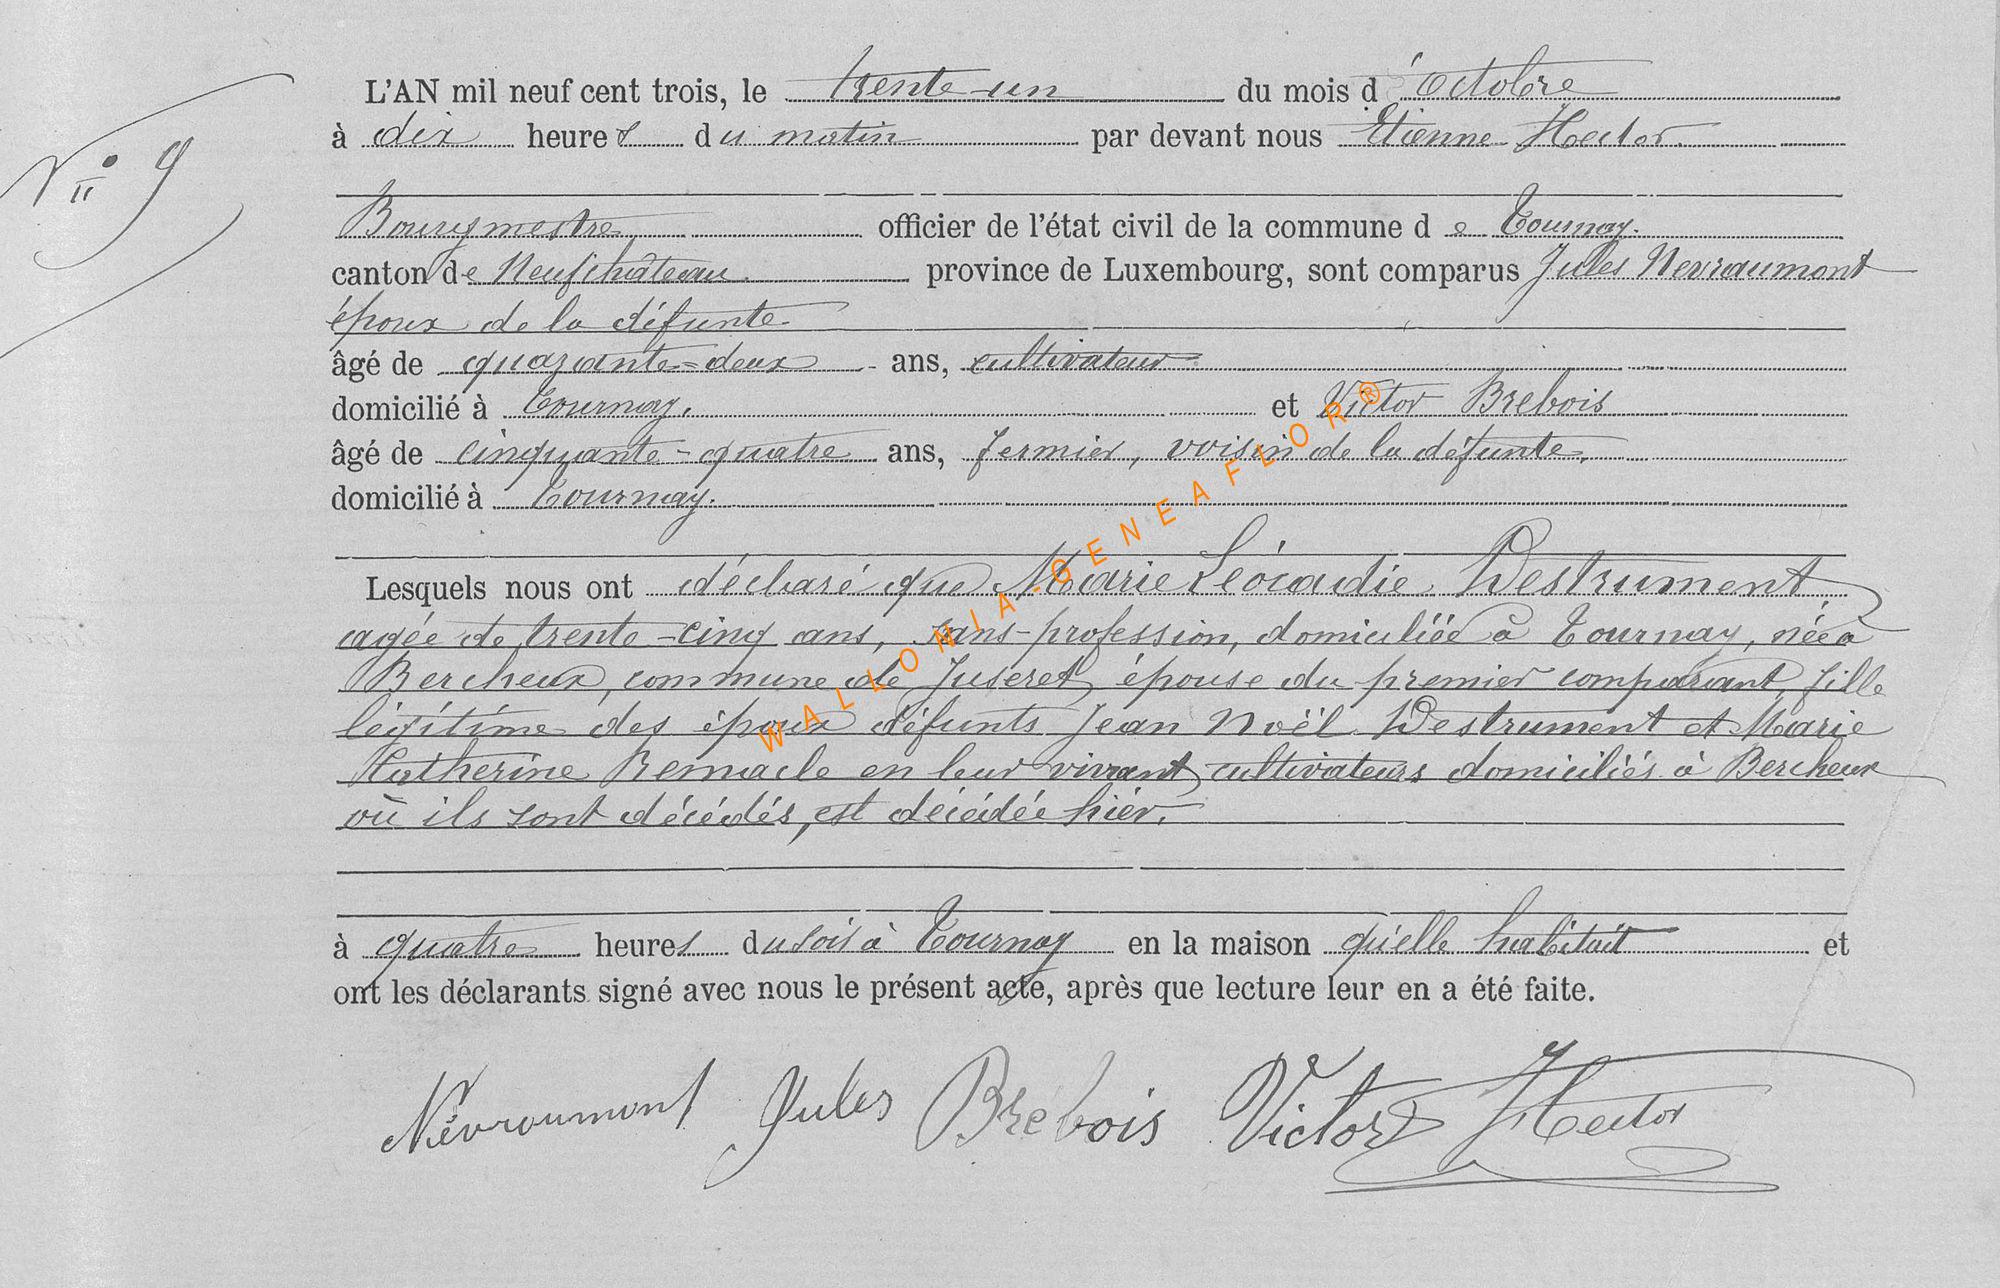 N° 9
L'AN mil neuf cent trois, le trente-un du mois d'Octobre
à dix heures du matin par devant nous Etienne Hector.
Bourgmestre officier de l'état civil de la commune de Tournay.
canton de Neufchâteau province de Luxembourg, sont comparus Jules Nevraumont
époux de la défunte.
âgé de quarante=deux ans, cultivateur
domicilié à Tournay. et Victor Brebois
âgé de cinquante-quatre ans, fermier, voisin de la défunte.
domicilié à Tournay.
Lesquels nous ont déclaré que Marie Léocadie Destrument
agée de trente-cinq ans, sans-profession, domiciliée à Tournay, née à
Bercheux, commune de Juseret, épouse du premier comparant, fille
légitime des époux défunts Jean Noël Destrument et Marie
Catherine Remacle en leur vivant cultivateurs domiciliés à Bercheux
où ils sont décédés, est décédée hier.
à quatre heures du soir à Tournay en la maison qu'elle habitait et
ont les déclarants signé avec nous le présent acte, après que lecture leur en a été faite.
Névraumont Jules Brebois Victor Hector
WALLONIA-GENEAFLOR®